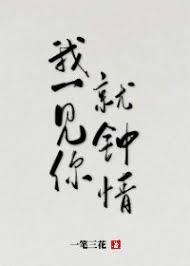 我一见你
就钟情
一笔三花